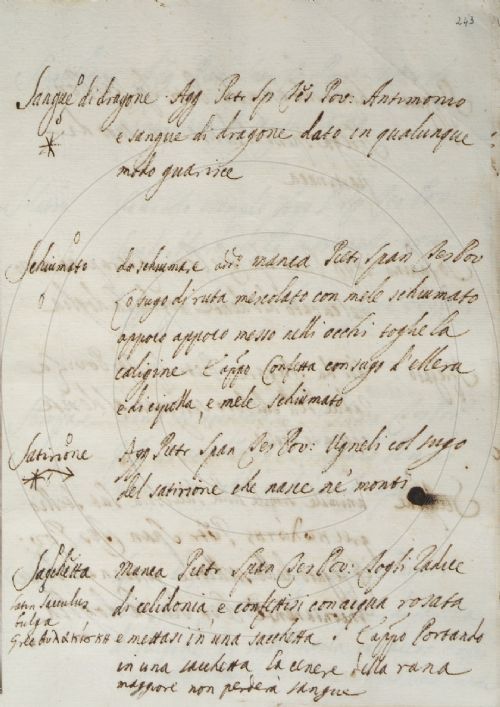 243
Sangue di dragone. Agg Pietr Sp Tes Pov: Antimonio
e sangue di dragone dato in qualunque
modo guarisce
Schiumato da schiumare manca Pietr Span Tes Pov
Lo sugo di ruta mescolato con mele schiumato
appoco appoco messo nelli occhi toglie la
caligine E appo Confetta con sugo d'ellera
e di cipolla, e mele schiumato
Satirione Agg Pietr Span Tes Pov: Ugneli col sugo
del satirione che nasce ne' monti
Sacchetta manca Pietr Span Tes Pov: Togli radice
latin sacculus di celidonia, e confettisi con acqua rosata
fulga
Gre e mettasi in una sacchetta. E appo Portando
in una sacchetta la cenere della rana
maggiore non perderà sangue